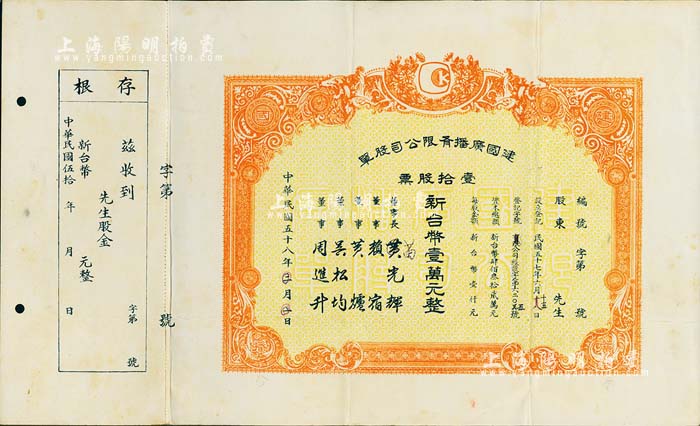 上海陽明拍賣
www.yangmingauction.com
建國廣播有限公司股單
壹拾股票
編號 字第 號
股東 先生
設立登記 民國五十七年六月 日
資本總額 新台幣肆佰叁拾貳萬元
每股金額 新台幣壹仟元
新台幣壹萬元整
董事長 黃光輝
董事 賴宿
董事 吳松均
董事 周進升
中華民國五十八年 月 日
字第 號
存根
茲收到
先生股金
新台幣 元整
中華民國伍拾 年 月 日
字第 號